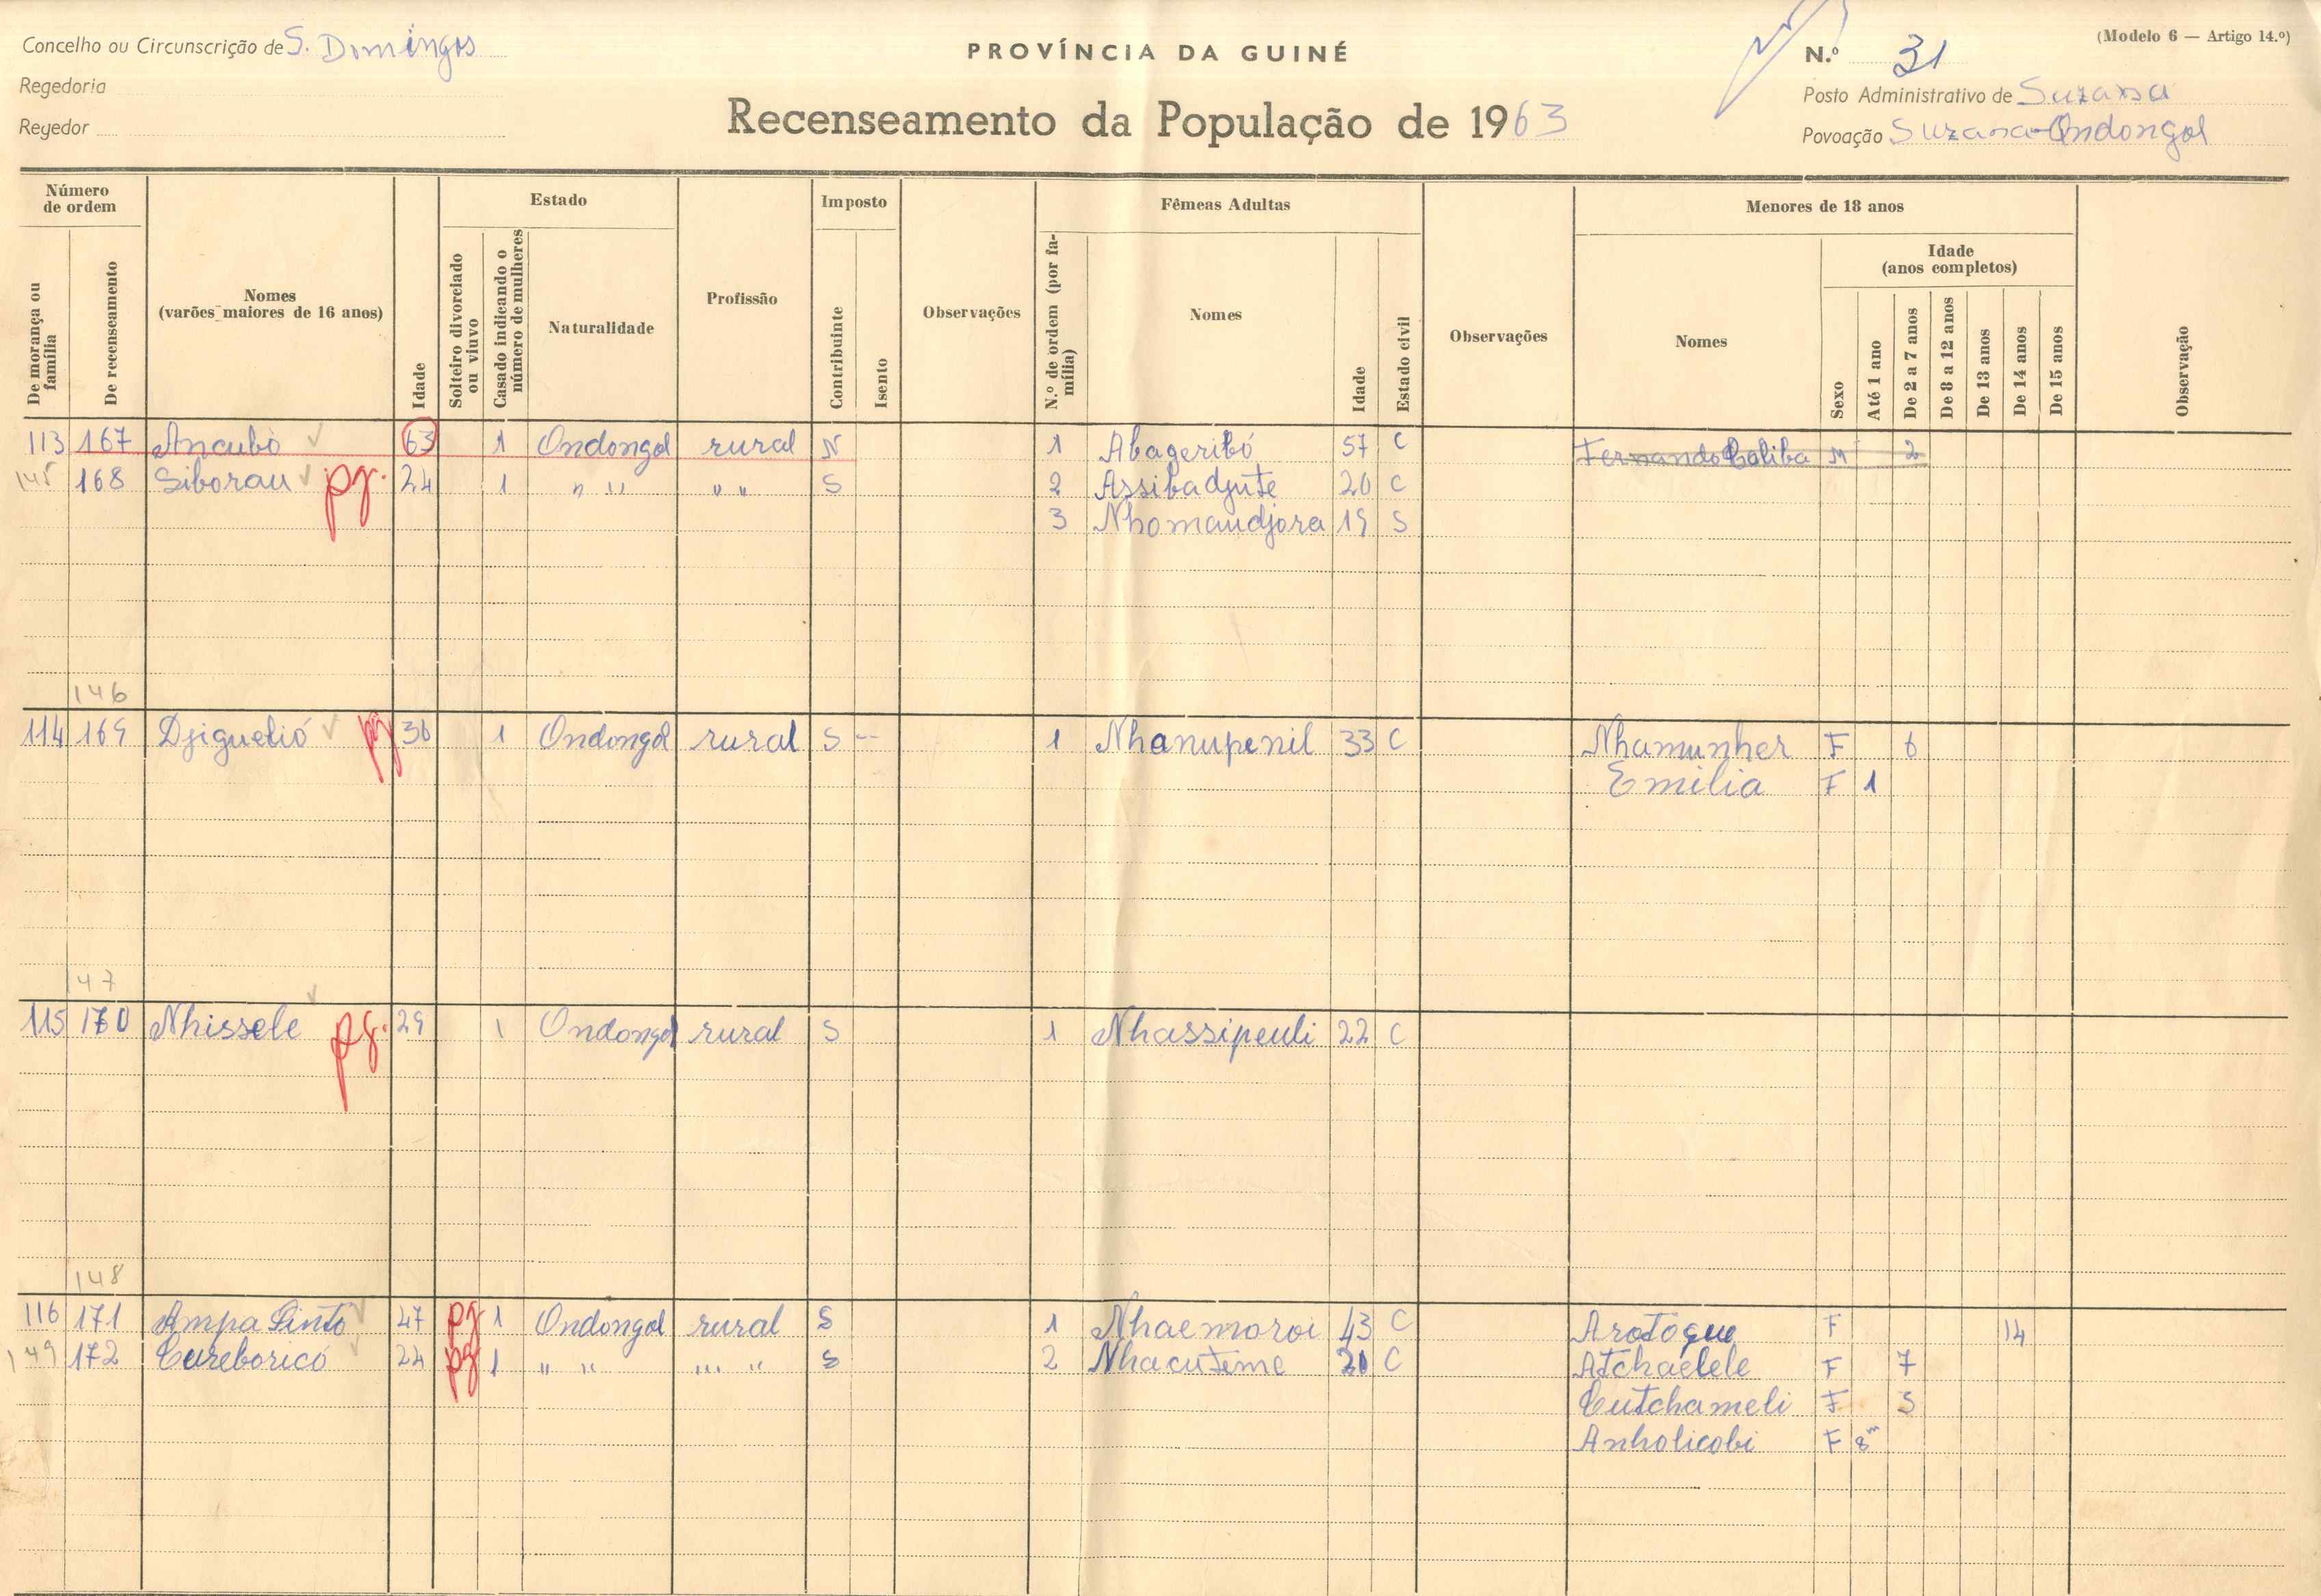 Concelho ou Circunscrição de S. Domingos
PROVÍNCIA DA GUINÉ
N.º 31
(Modelo 6 — Artigo 14.º)
Regedoria
Recenseamento da População de 1963
Posto Administrativo de Suzana
Regedor
Povoação Suzana-Ondongol
Número de ordem
Estado
Imposto
Fêmeas Adultas
Menores de 18 anos
Idade (anos completos)
De morança ou família
De recenseamento
Nomes (varões maiores de 16 anos)
Idade
Solteiro divorciado ou viuvo
Casado indicando o número de mulheres
Naturalidade
Profissão
Contribuinte
Isento
Observações
N.º de ordem (por família)
Nomes
Idade
Estado civil
Observações
Nomes
Sexo
Até 1 ano
De 2 a 7 anos
De 8 a 12 anos
De 13 anos
De 14 anos
De 15 anos
Observação
113 167 Ancubo 63 1 Ondongol rural N 1 Abageribó 57 C Fernando Caliba M 2
145 168 Siborau pg. 24 1 " " " " S 2 Assibadjute 20 C
3 Nhomaudjora 19 S
146
114 169 Djiguelió pg 36 1 Ondongol rural S -- 1 Nhanupenil 33 C Nhamunher F 6
Emilia F 1
147
115 170 Nhissele pg. 29 1 Ondongol rural S 1 Nhassipeuli 22 C
148
116 171 Ampa Pinto 47 pg 1 Ondongol rural S 1 Nhaemoroi 43 C Arotoque F 14
149 172 Cureboricó 24 pg 1 " " " " S 2 Nhacuteme 20 C Atchaélele F 7
Cutchameli F 5
Anholicobi F 8m